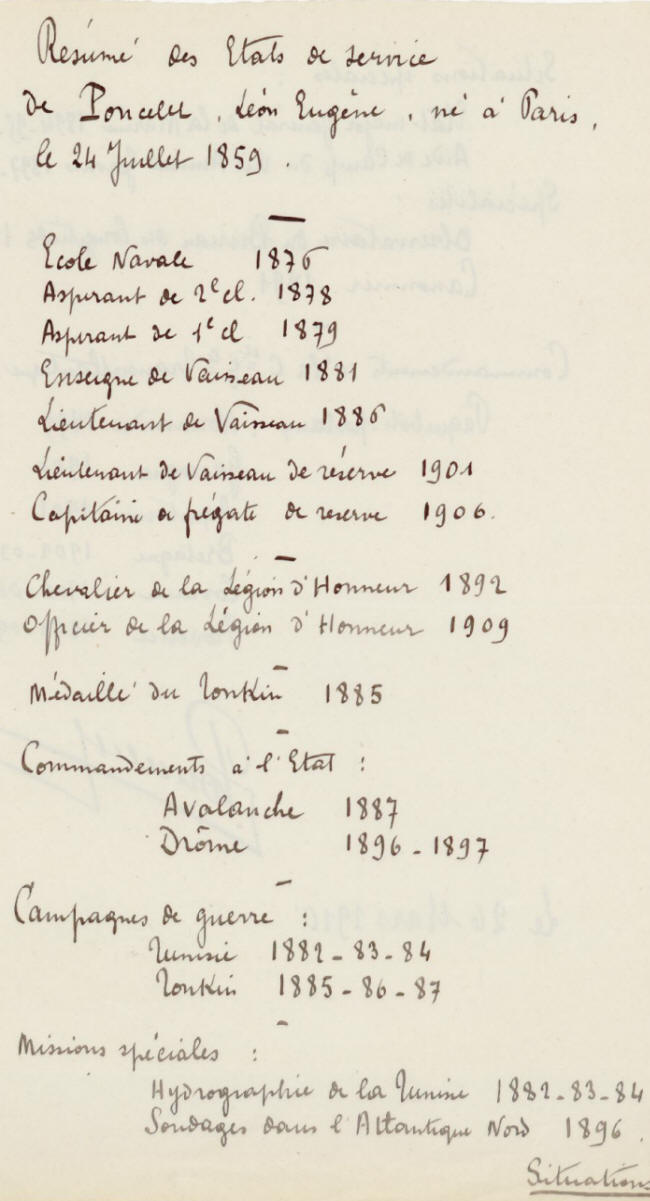 Résumé des Etats de service
de Poncelet, Léon Eugène, né à Paris,
le 24 Juillet 1859.
Ecole Navale 1876
Aspirant de 2e cl. 1878
Aspirant de 1e cl 1879
Enseigne de Vaisseau 1881
Lieutenant de Vaisseau 1886
Lieutenant de Vaisseau de réserve 1901
Capitaine de frégate de reserve 1906.
Chevalier de la Légion d'Honneur 1892
Officier de la Légion d'Honneur 1909
Médaille du Tonkin 1885
Commandements à l'Etat :
Avalanche 1887
Drôme 1896-1897
Campagnes de guerre :
Tunisie 1882-83-84
Tonkin 1885-86-87
Missions spéciales :
Hydrographie de la Tunisie 1882-83-84
Sondages dans l'Atlantique Nord 1896.
Situations